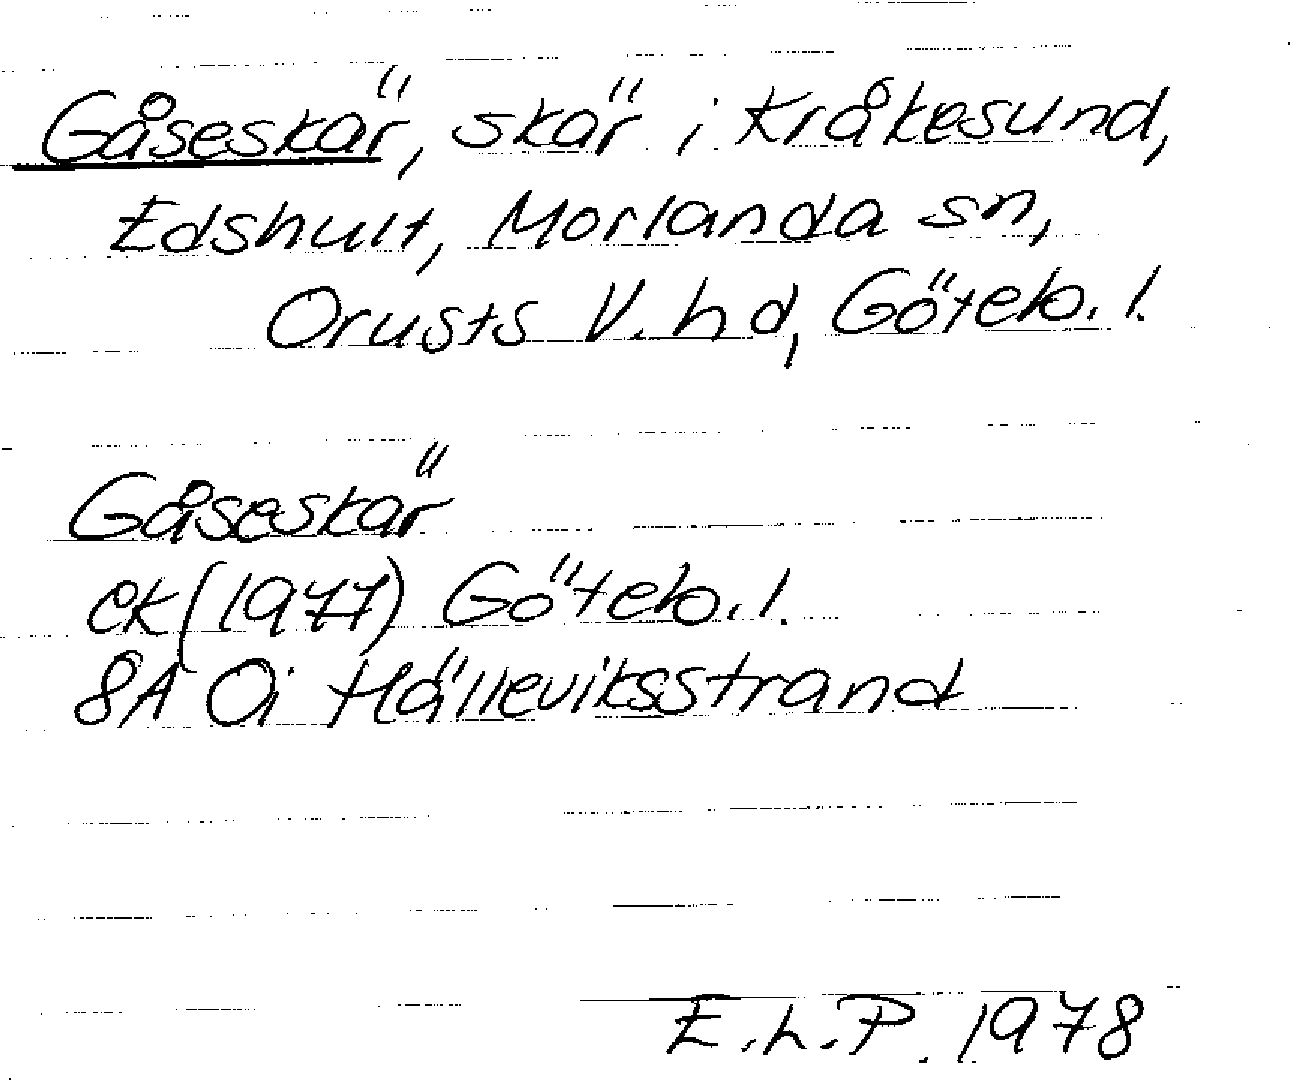 Gåseskär, skär i Kråkesund,
Edshult, Morlanda sn,
Orusts V. hd, Göteb. l.
Gåseskär
ek (1977) Göteb. l.
8A 0i Hälleviksstrand
E.L.P. 1978